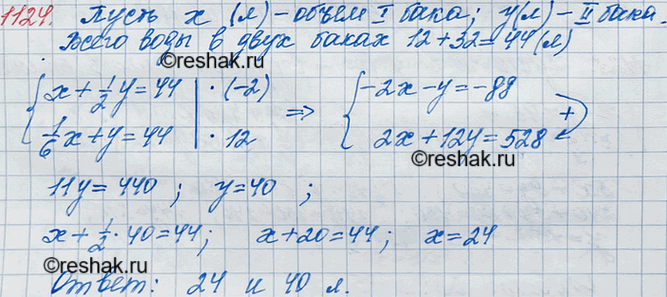 1124. Пусть x (л) – объём I бака; y(л) – II бака.
Всего воды в двух баках 12 + 32 = 44 (л)
{ x + 1/2 y = 44 | · (-2) ⇒ { -2x - y = -88
1/6 x + y = 44 | · 12 2x + 12y = 528 +
©reshak.ru
11y = 440 ; y = 40 ;
x + 1/2 · 40 = 44; x + 20 = 44; x = 24
©reshak.ru ©reshak.ru
Ответ: 24 и 40 л.